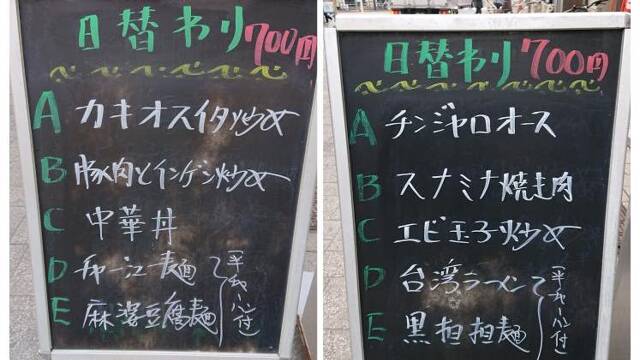 日替わり 700円
A カキオスイタ炒め
B 豚肉とインゲン炒め
C 中華丼
D チャー江麺
E 麻婆豆腐麺
半チャーハン付
日替わり 700円
A チンジャロオース
B スナミナ焼き肉
C エビ玉子炒め
D 台湾ラーメン
E 黒担担麺
半チャーハン付